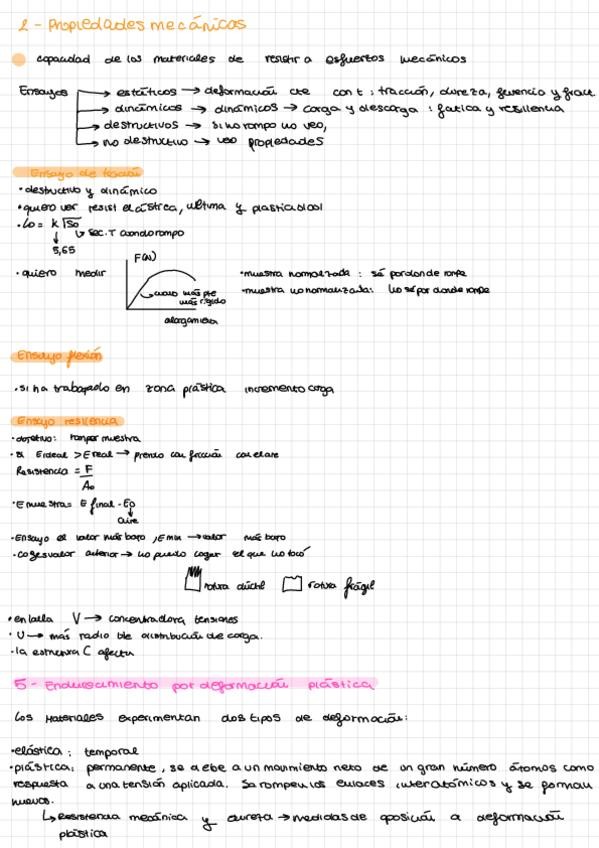 2 - Propiedades mecánicas
capacidad de los materiales de resistir a esfuertos mecánicos
Ensayos → estáticos → deformación cte con t : tracción, dureza, fluencia y fract
→ dinámicos → dinámicos → carga y descarga : fatiga y resiliencia
→ destructivos → si no rompo no veo,
→ no destructivo → veo propiedades
Ensayo de tracción
• destructivo y dinámico
• quiero ver resist elástica, ultima y plasticidad
• Lo = K √So
↳ sec. T cuando rompo
5,65
• quiero medir
F(N)
↳ cuanto más pte
más rígido
alargamiento
• muestra normalizada : sé por donde rompe
• muestra no normalizada: no sé por donde rompe
Ensayo flexión
• si ha trabajado en zona plástica incremento carga
Ensayo resiliencia
• objetivo: romper muestra
• si E ideal > E real → pierdo con fricción con el aire
Resistencia = F
Ao
• E muestra = E final - Ep
aire
• Ensayo el valor más bajo, Emin → valor más bajo
• cojo valor anterior → no puedo coger el que no tocó
rotura dúctil rotura frágil
• entalla V → concentradora tensiones
• U → más radio de distribución de carga.
• la estructura C afecta
5 - Endurecimiento por deformación plástica
Los Materiales experimentan dos tipos de deformación:
• elástica : temporal
• plástica: permanente, se debe a un movimiento neto de un gran número átomos como
respuesta a una tensión aplicada. Se rompen los enlaces interatómicos y se forman
nuevos.
↳ Resistencia mecánica y dureza → medidas de oposición a deformación
plástica